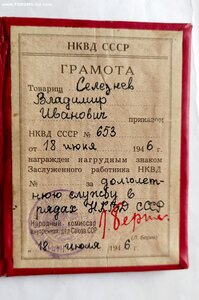 НКВД СССР
ГРАМОТА
Товарищ Селезнев
Владимир
Иванович приказом
НКВД СССР № 653
от 18 июня 1946 г.
награжден нагрудным знаком
Заслуженного работника НКВД
№ за долголет-
нюю службу в
рядах НКВД СССР
Народный комиссар
внутренних дел Союза ССР
Л. Берия
(Л. Берия)
18 июля 1946 г.